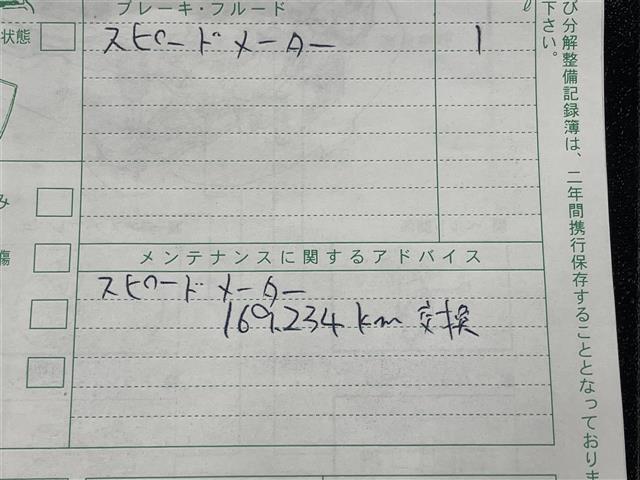 ブレーキ・フルード
ℓ
状態
スピードメーター 1
み
傷
メンテナンスに関するアドバイス
スピードメーター
169.234km 交換
び分解整備記録簿は、二年間携行保存することとなっておりま
下さい。